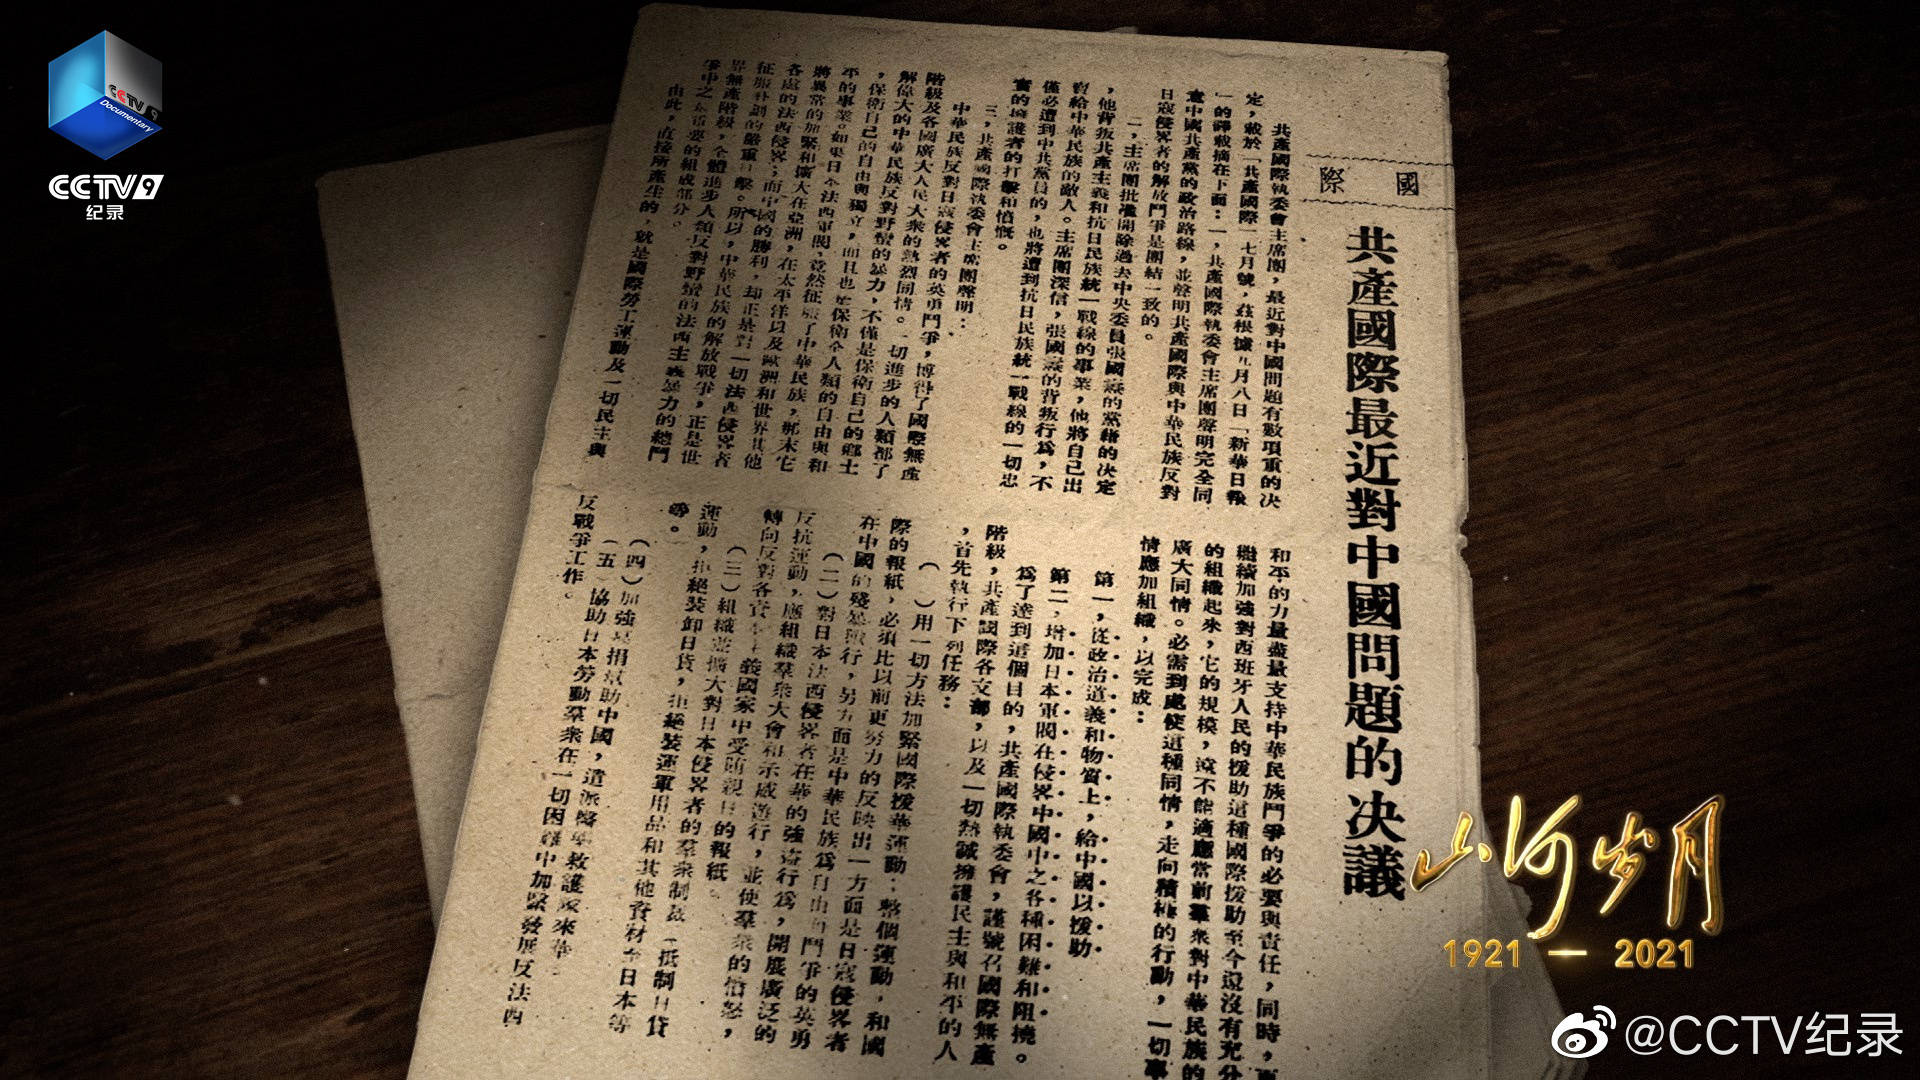 CCTV 9
Documentary
CCTV9
纪录
國際
共產國際最近對中國問題的決議
共產國際執委會主席團,最近對中國問題有數項重的决
定,載於「共產國際」七月號,茲根據九月八日「新華日報
」的譯載摘在下面:一,共產國際執委會主席團聲明完全同
意中國共產黨的政治路線,並聲明共產國際與中華民族反對
日寇侵畧者的解放鬥爭是團結一致的。
二,主席團批准開除過去中央委員張國燾的黨籍的决定
,他背叛共產主義和抗日民族統一戰線的事業,他將自己出
賣給中華民族的敵人。主席團深信,張國燾的背叛行爲,不
僅必遭到中共黨員的,也將遭到抗日民族統一戰線的一切忠
實的擁護者的打擊和憤慨。
三,共產國際執委會主席團聲明:
中華民族反對日寇侵畧者的英勇鬥爭,博得了國際無產
階級及各國廣大人民大衆的熱烈同情。一切進步的人類都了
解偉大的中華民族反對野蠻的暴力,不僅是保衛自己的鄉土
,保衛自己的自由與獨立,而且也是保衛全人類的自由與和
平的事業。如果日本法西軍閥,竟然征服了中華民族,那末它
將異常的加緊和擴大在亞洲,在太平洋以及歐洲和世界其他
各處的法西侵畧;而中國的勝利,却正是對一切法西侵畧者
征服計劃的嚴重打擊。所以,中華民族的解放戰爭,正是世
界無產階級,全體進步人類反對野蠻的法西主義暴力的總鬥
爭中之最重要的組成部分。
由此,直接所產生的,就是國際勞工運動及一切民主與
和平的力量盡量支持中華民族鬥爭的必要與責任,同時,
繼續加強對西班牙人民的援助這種國際援助至今還沒有充分
的組織起來,它的規模,遠不能適應當前羣衆對中華民族的
廣大同情。必需到處使這種同情,走向積極的行動,一切
情應加組織,以完成:
第一,從政治道義和物質上,給中國以援助
第二,增加日本軍閥在侵畧中國中之各種困難和阻撓。
爲了達到這個目的,共產國際執委會,謹號召國際無產
階級,共產國際各支部,以及一切熱誠擁護民主與和平的人
,首先執行下列任務:
( )用一切方法加緊國際援華運動:整個運動,和國
際的報紙,必須比以前更努力的反映出一方面是日寇侵畧者
在中國的殘暴獸行,另方面是中華民族爲自由而鬥爭的英勇
(二)對日本法西侵畧者在華的強盜行爲,開展廣泛的
反抗運動,應組織羣衆大會和示威遊行,並使羣衆的憤怒,
轉向反對各資本主義國家中受賄親日的報紙
(三)組織並擴大對日本侵畧者的羣衆制裁(抵制日貨
運動,拒絕裝卸日貨,拒絕裝運軍用品和其他資材至日本等
等。
(四)加強募捐幫助中國,遣派醫藥救護隊來華
(五)協助日本勞動羣衆在一切困難中加緊發展反法西
反戰爭工作。
山河岁月
1921 — 2021
@CCTV纪录